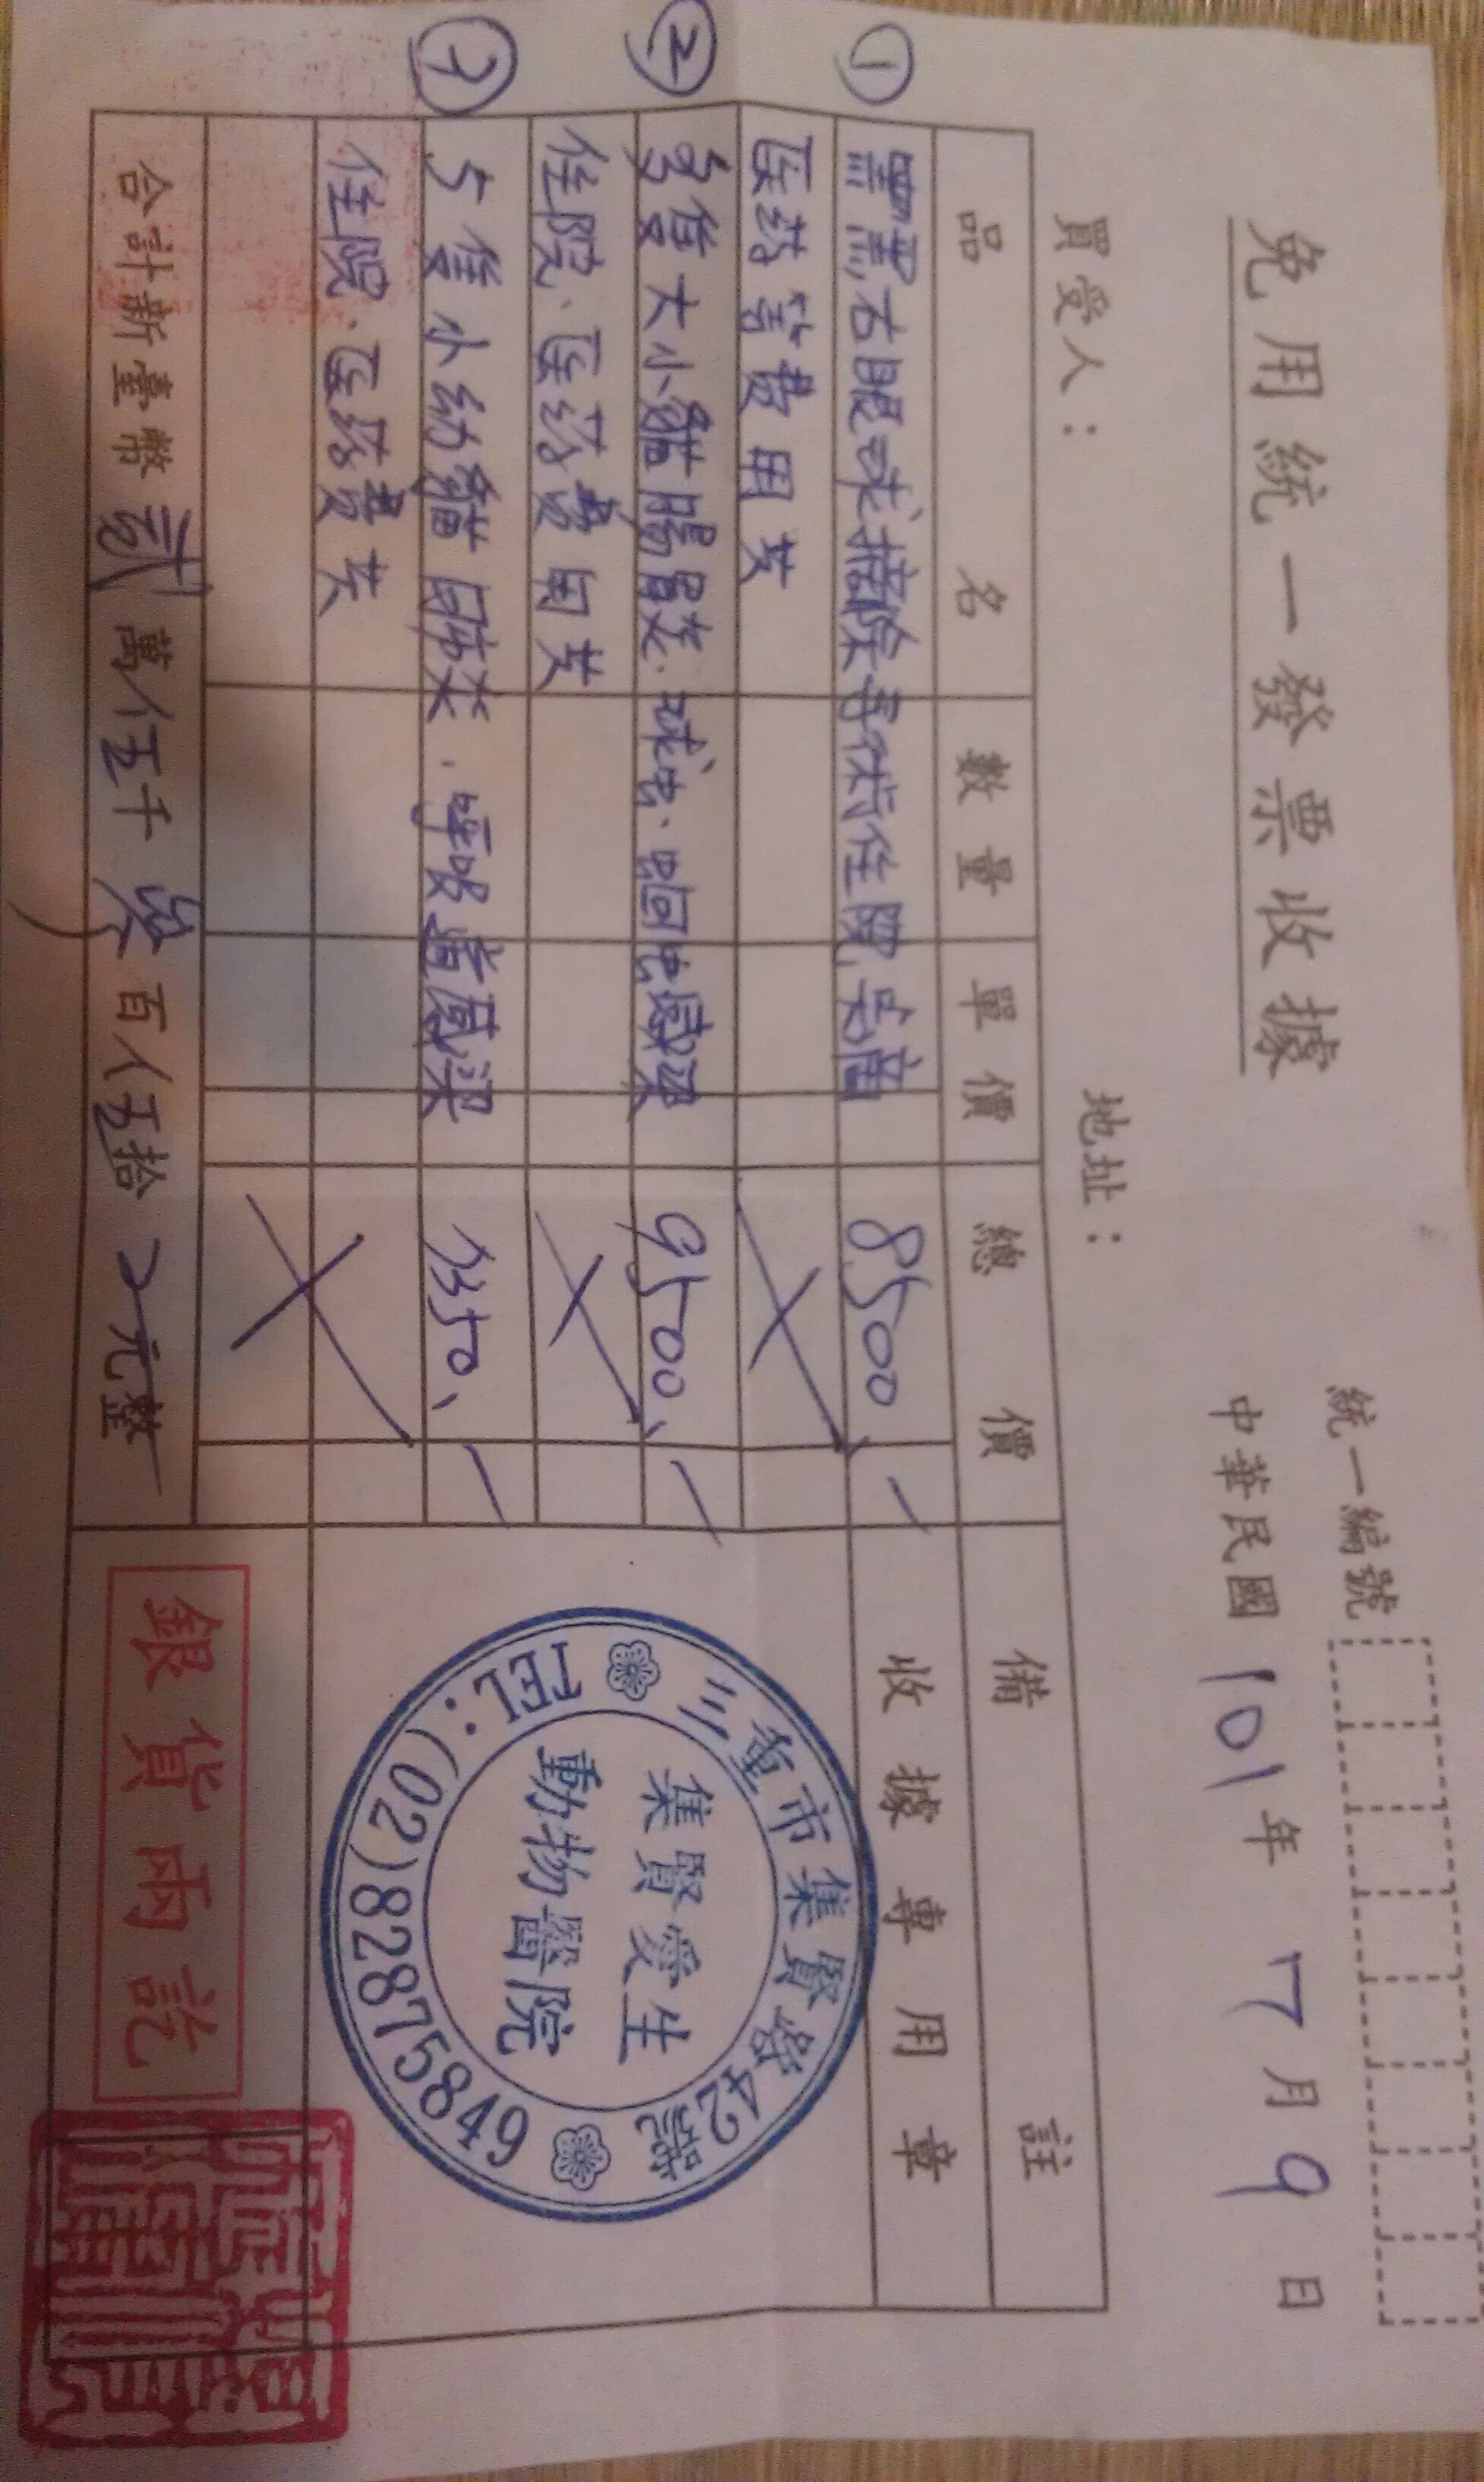 免用統一發票收據
統一編號
中華民國 101 年 7 月 9 日
買受人： 地址：
品名 數量 單價 總價 備註
① 黑黑,右眼球摘除手術住院, 8500、
医药等費用共
② 隻大小貓腸胃炎、球虫、蛔虫感染 9500、
住院、医药費用共
5隻小幼貓肺炎、呼吸道感染
住院、医药費共
合計新臺幣 貳萬仟伍千參百伍拾元整
收據專用章
三重市集賢路42號
集賢愛生
動物醫院
TEL：(02)82875849
銀貨兩訖